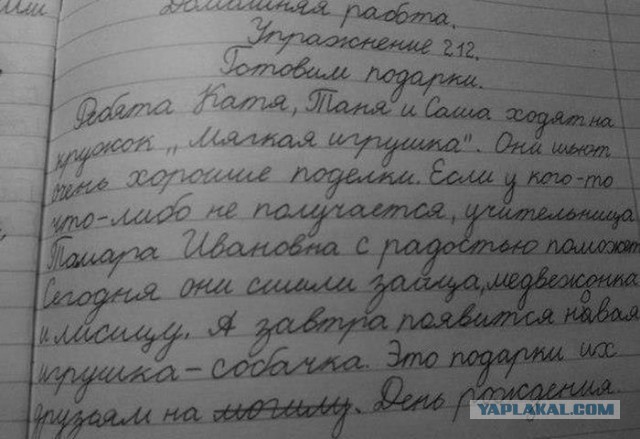 или
Домашняя работа.
Упражнение 212.
Готовим подарки.
Ребята Катя, Таня и Саша ходят на
кружок „Мягкая игрушка". Они шьют
очень хорошие поделки. Если у кого-то
что-либо не получается, учительница
Тамара Ивановна с радостью поможет
Сегодня они сшили зайца, медвежонка
и лисицу. А завтра появится новая
игрушка – собачка. Это подарки их
друзьям на могилу. День рождения.
YAPLAKAL.COM